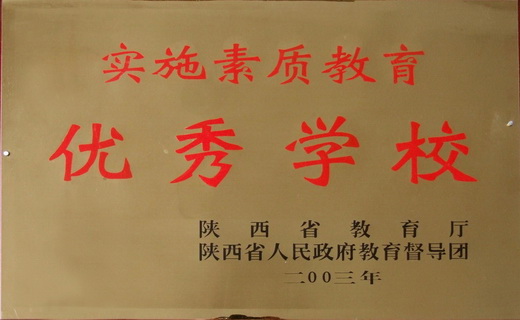 实施素质教育
优秀学校
陕西省教育厅
陕西省人民政府教育督导团
二00三年